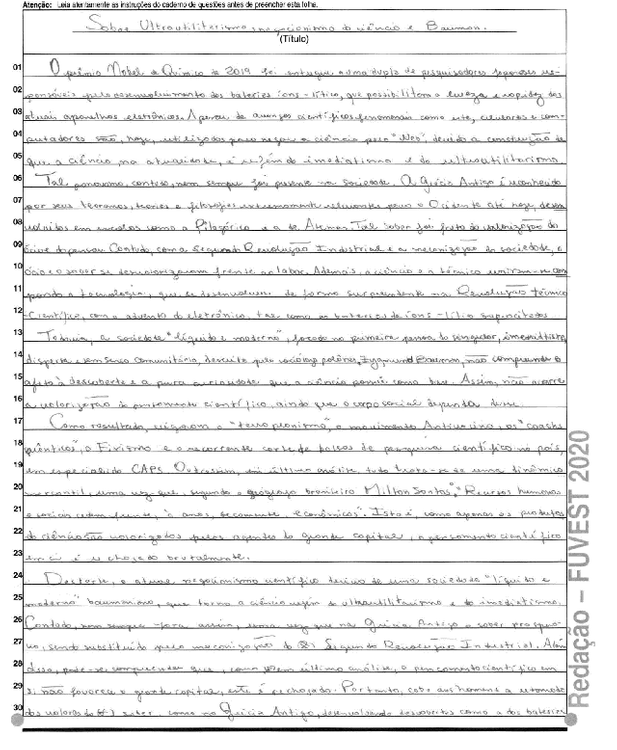 Atenção: Leia atentamente as instruções do caderno de questões antes de preencher esta folha.
Sobre Ultrautilitarismo, negacionismo da ciência e Bauman.
(Título)
01 O prêmio Nobel de Química de 2019 foi entregue a uma dupla de pesquisadores japoneses res-
02 ponsáveis pelo desenvolvimento das baterias íons-lítio, que possibilitam a leveza e rapidez dos
03 atuais aparelhos eletrônicos. Apesar de avanços científicos fenomenais como este, celulares e com-
04 putadores são, hoje, utilizados para negar a ciência pelo "Neo", devido a construção de
05 que a ciência, na atualidade, é refém do imediatismo e do ultrautilitarismo
06 Tal panorama, contudo, nem sempre foi presente na sociedade. A Grécia Antiga é reconhecida
07 por seus teoremas, teorias e filosofias extremamente relevantes para o Ocidente até hoje, desen
08 volvidos em escolas como a Pitagórica e a de Atenas. Tal saber foi fruto da valorização do
09 ócio e do pensar. Contudo, com a Segunda Revolução Industrial e a mecanização da sociedade, o
10 ócio e o saber se desvalorizaram frente ao labor. Ademais, a ciência e a técnica uniram-se
11 a tecnologia, que se desenvolveu de forma surpreendente na Revolução técnico
12 Científica, com o advento da eletrônica, tais como as baterias de íons-lítio supracitadas
13 Todavia, a sociedade "líquida e moderna", focada na primeira pessoa do singular, imediatista,
14 dispersa e sem senso comunitário, descrita pelo sociólogo polonês, Zygmund Bauman, não compreende o
15 afeto à descoberta e a pura curiosidade que a ciência possui como base. Assim, não ocorre
16 a valorização do pensamento científico, ainda que o corpo social dependa dele.
17 Como resultado, surgiram o "terraplanismo", o movimento Antivacina, os "coachs
18 quânticos", o Fixismo e o recorrente corte de bolsas de pesquisa científica no país,
19 em especial da CAPS. Outrossim, em última análise, tudo trata-se de uma dinâmica
20 mercantil, uma vez que, segundo o geógrafo brasileiro Milton Santos, "Recursos humanos
21 e sociais cedem frente, à anos, secamente econômicos". Isto é, como apenas os produtos
22 da ciência são valorizados pelos agentes do grande capital, o pensamento científico
23 em si é rechaçado brutalmente.
24 Destarte, o atual negacionismo científico deriva de uma sociedade "líquida e
25 moderna" baumaniana, que torna a ciência refém do ultrautilitarismo e do imediatismo.
26 Contudo, nem sempre fora assim, uma vez que na Grécia Antiga o saber prosperou,
27 sendo substituído pela mecanização da Segunda Revolução Industrial. Além
28 disso, pode-se compreender que, como em última análise, o pensamento científico em
29 si não favorece o grande capital, este é rechaçado. Portanto, cabe aos homens a retomada
30 dos valores do saber, como na Grécia Antiga, desenvolvendo descobertas como a das baterias
Redação – FUVEST 2020